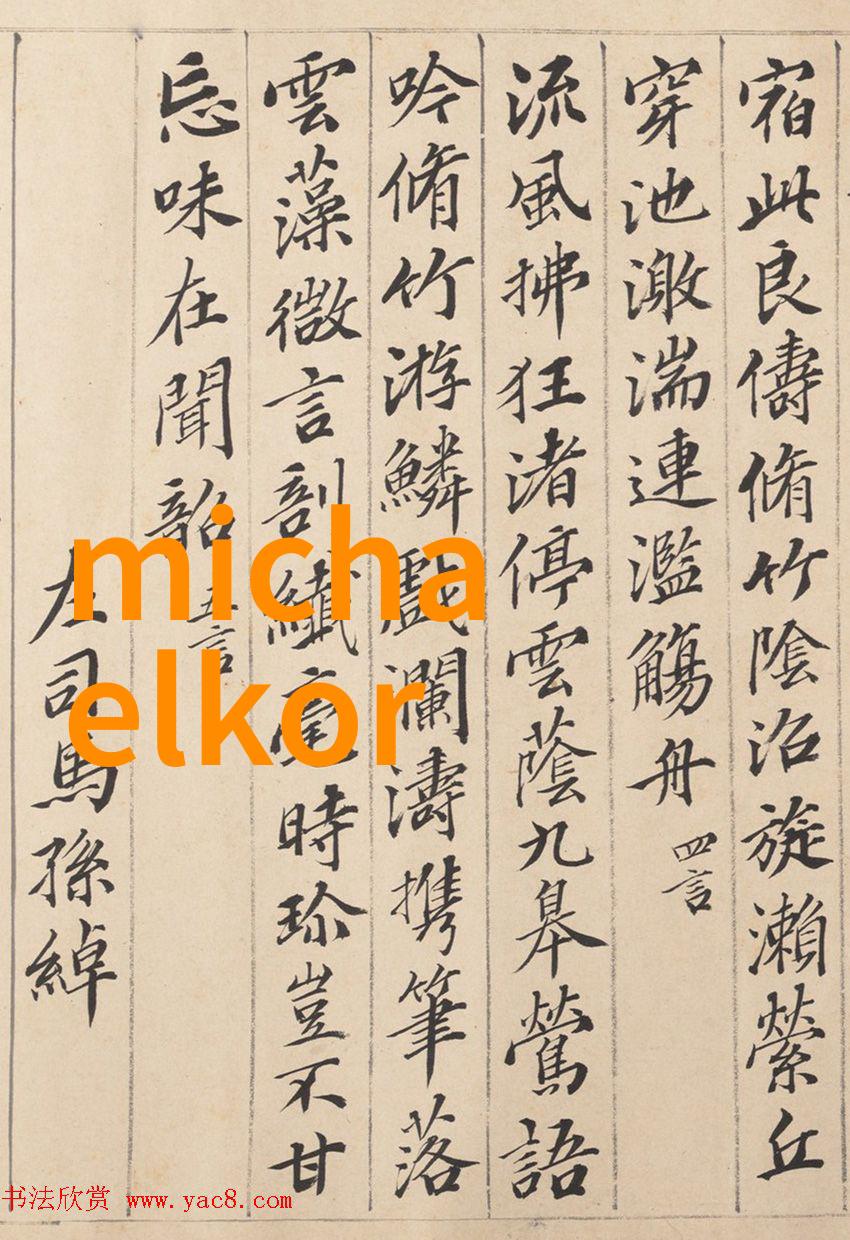 宿此良儔脩竹陰沼旋瀨縈丘
穿池激湍連濫觴舟 四言
流風拂狂渚停雲蔭九皋鶯語
吟脩竹游鱗戲瀾濤携筆落
雲藻微言剖纖毫時珍豈不甘
忘味在聞韶 五言
左司馬孫綽
micha
elkor
书法欣赏 www.yac8.com